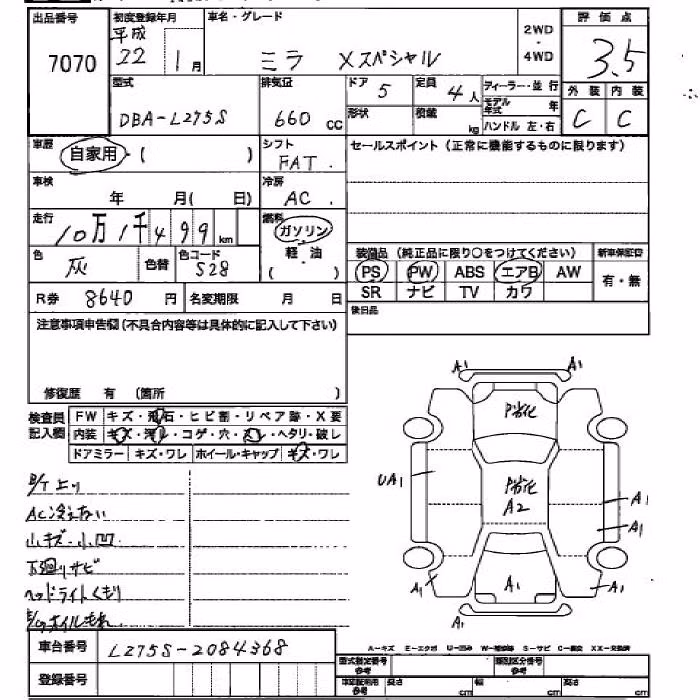 出品番号 初度登録年月 車名・グレード 2WD ・ 4WD 評価点
7070 平成 22 1月 ミラ Xスペシャル 3.5
型式 排気量 ドア 5 定員 4人 ディーラー・並行 外装 内装
DBA-L275S 660 cc 形状 積載 kg モデル年式 年 ハンドル 左・右 C C
車歴 自家用・( ) シフト FAT. セールスポイント(正常に機能するものに限ります)
車検 年 月( 日) 冷房 AC.
走行 10万1千499km 燃料 ガソリン
色 灰 色替 色コード S28 軽油 ( )
装備品 (純正品に限り○をつけてください) 新車保証書
PS PW ABS エアB AW 有・無
SR ナビ TV カワ
R券 8640円 名変期限 月 日 後日品
注意事項申告欄(不具合内容等は具体的に記入して下さい)
修復歴 有 (箇所 )
検査員記入欄 FW キズ・飛石・ヒビ割・リペア跡・X要
内装 キズ・汚レ・コゲ・穴・スレ・ヘタリ・破レ
ドアミラー キズ・ワレ ホイール・キャップ キズ・ワレ
A1 A1
P劣化
P劣化
A2
UA1 A1
A1
A1 A1 A1
A1
AC冷えない
小キズ・小凹
下廻りサビ
ヘッドライトくもり
オイルもれ
車台番号 L275S-2084368
登録番号
A-キズ E-エクボ U-凹み W-補修跡 S-サビ C-腐食 XX-交換済
型式指定番号 参考 類別区分番号 参考
車検証用 参考 長さ cm 幅 cm 高さ cm